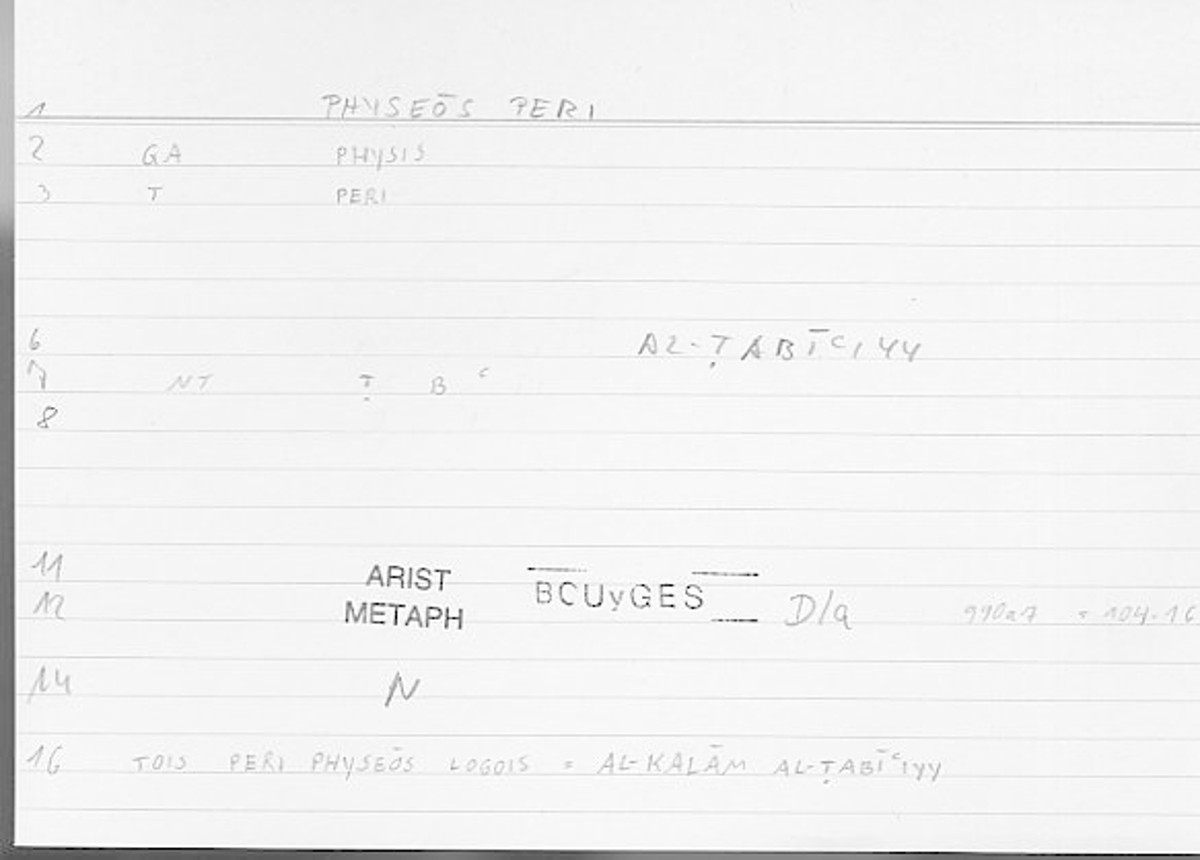 1 PHYSEŌS PERI
2 GA PHYSIS
3 T PERI
6 AL-ṬABĪʿIYY
7 NT Ṭ B ʿ
8
11 ARIST
12 METAPH BCUyGES D/a 990a7 = 104.16
14 N
16 TOIS PERI PHYSEŌS LOGOIS = AL-KALĀM AL-ṬABĪʿIYY